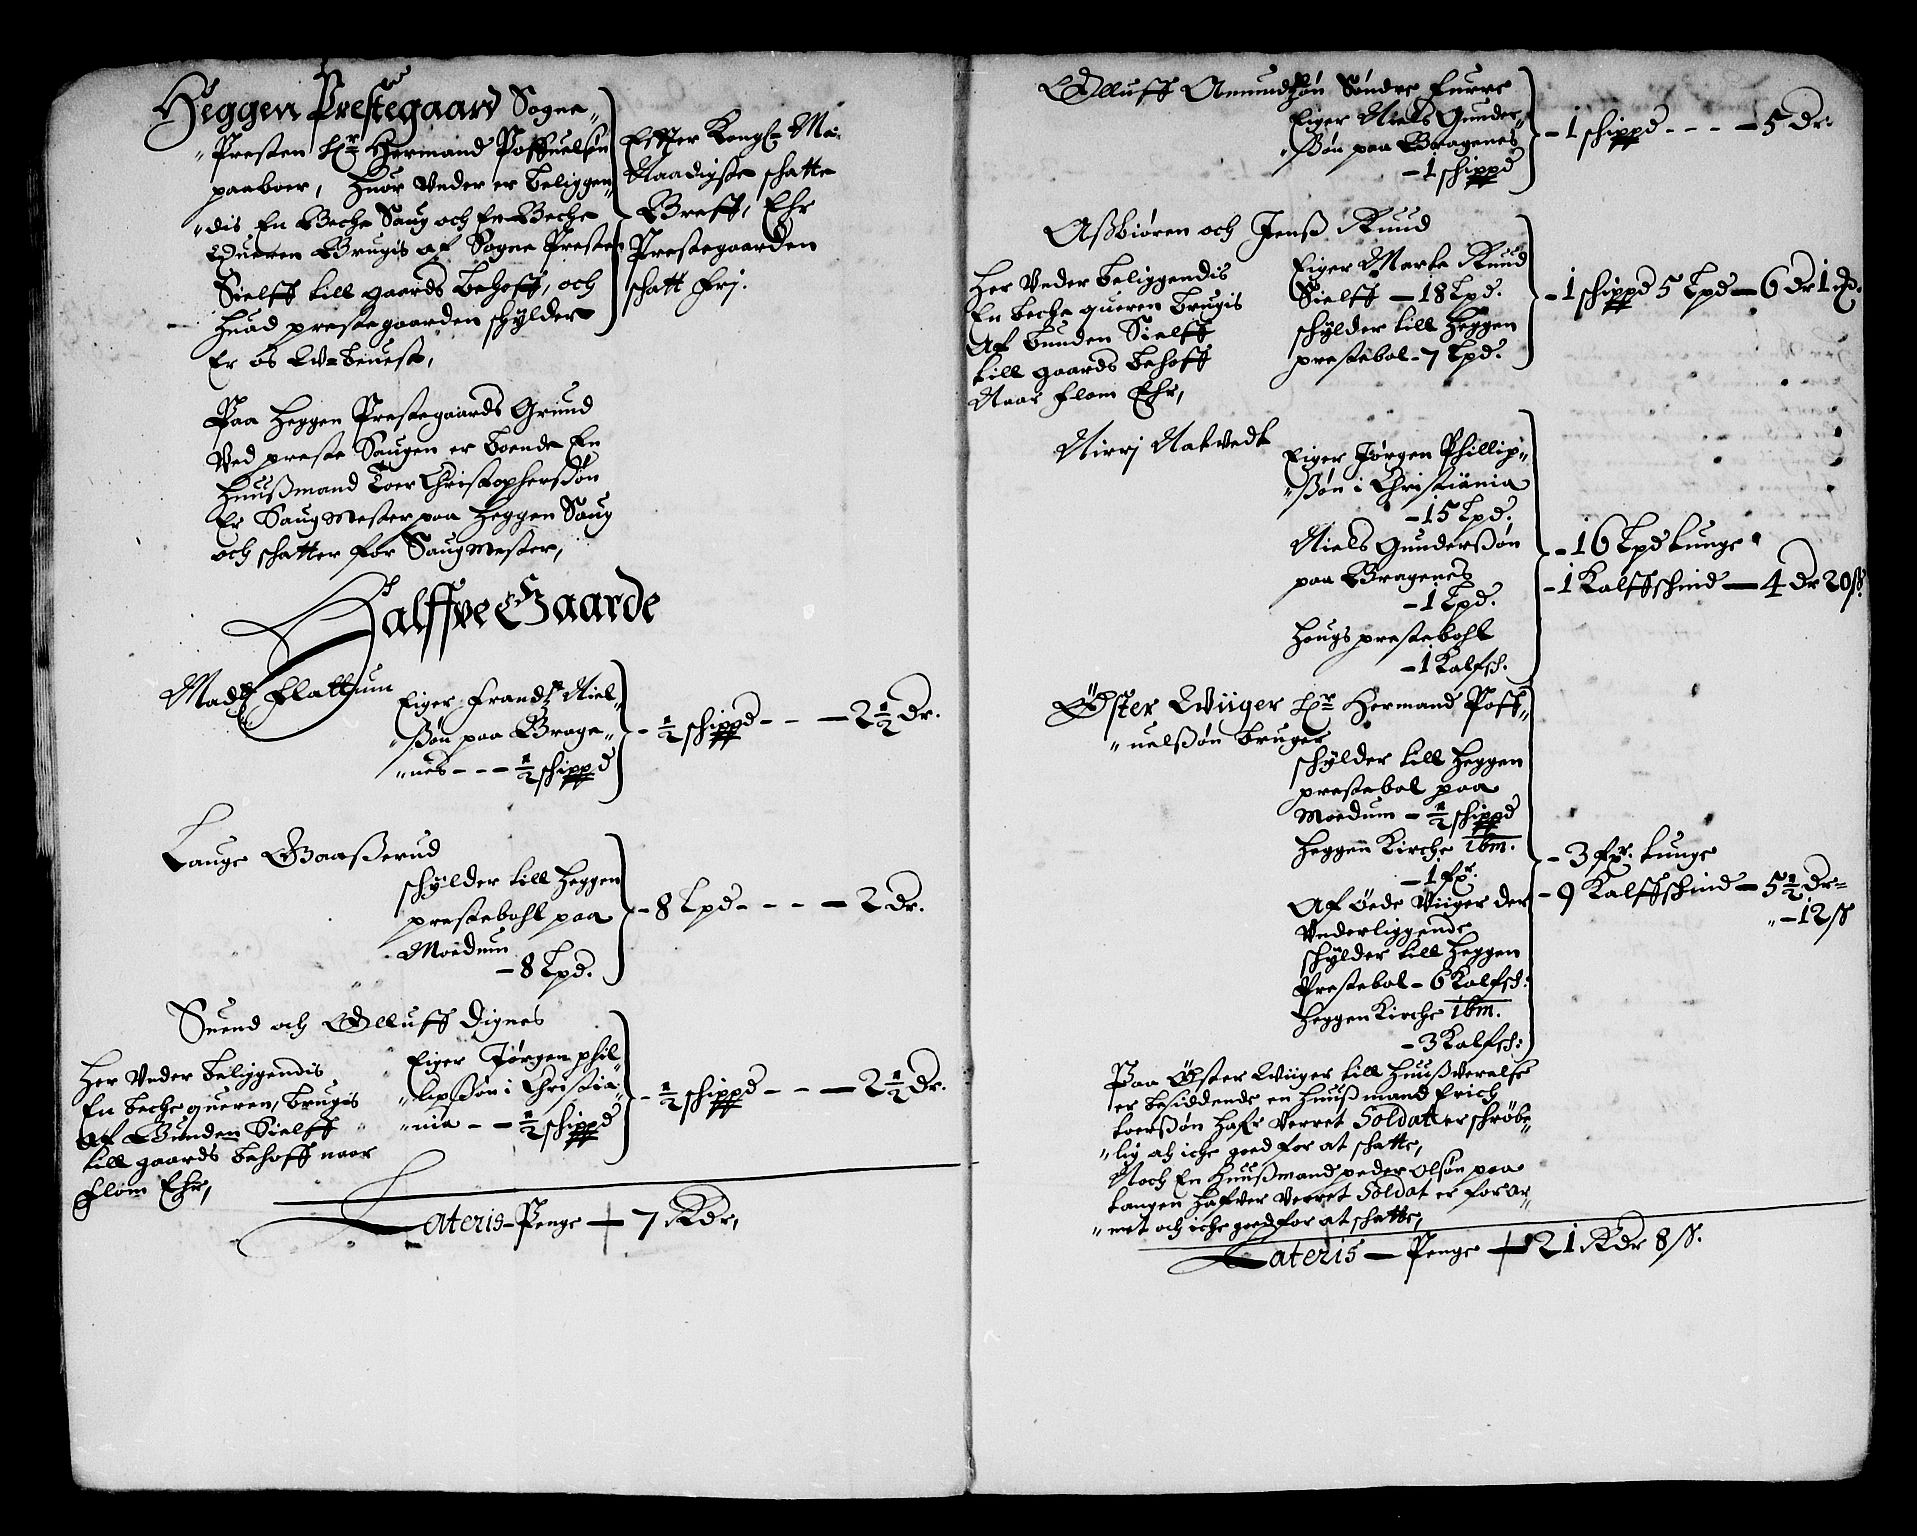 Heggen Prestegaard Sogne-
Presten Hr Hermand Poffuelsøn
paaboer, huor Vnder er beliggen-
dis En Beche Saug och En Beche
Queren Brugis af Sogne Presten
Sielff till gaards behoff, och
huad prestegaarden schylder
Er os Vbeuest,
Effter Kongl: Ma:
Naadigste schatte
Breff, Ehr
Prestegaarden
schatt frj.
Paa Heggen Prestegaards Grund
Ved preste Saugen er boende En
huußmand Toer Christophersøn
Er Saugmester paa Heggen Saug
och schatter for Saugmester,
Halffve Gaarde
Madß Flattum
Eiger Frandtz Niel-
ßøn paa Brage-
nes - - - ½ schippd
- ½ schippd - - - 2½ dr.
Lauge Gaaßerud
schylder till Heggen
prestebohl paa
Moedum
- 8 Lpd.
- 8 Lpd - - - - 2 dr.
Suend och Olluff Dignes
Her Vnder beliggendis
En beche queren, brugis
af Bunden Sielff
till gaards behoff naar
flom Ehr,
Eiger Jørgen phil-
lipßøn i Christia-
nia - - ½ schippd
- ½ schippd - - - 2½ dr.
Lateris Penge - 7 Rdr,
Olluff Amundßøn Søndre Furre
Eiger Niels Gunder-
ßøn paa Bragenes
- 1 schippd
- 1 schippd - - - - 5 dr.
Aßbiøren och Jenß Ruud
Her Vnder beliggendis
En beche queren brugis
Af bunden Sielff
till gaards behoff
Naar flom Ehr,
Eiger Marte Ruud
Sielff - 18 Lpd.
schylder till Heggen
prestebol - 7 Lpd.
- 1 schippd 5 Lpd - 6 dr 1 ort
Nirrj Nakvedt
Eiger Jørgen Phillip-
ßøn i Christiania
- 15 Lpd.
Niels Gunderßøn
paa Bragenes
- 1 Lpd.
Hougs prestebohl
- 1 Kalfsch.
- 16 Lpd tunge
- 1 Kalffschind - 4 dr 20 ß.
Øster Wiiger Hr Hermand Poff-
uelßøn bruger
schylder till Heggen
prestebol paa
Moedum - ½ schippd
Heggen Kirche ibm.
- 1 fpr.
Af øede Viiger der
Vnderliggende
schylder till Heggen
Prestebol - 6 Kalfsch:
Heggen Kirche ibm.
- 3 Kalfsch:
- 3 fpr. tunge
- 9 Kalffschind - 5½ dr
- 12 ß
Paa Øster Wiiger till huußverelse
er besiddende en huußmand Erich
toersøn hafr Verret Soldatt er schrøbe-
lig och iche goed for at schatte,
Noch En huußmand peder Olsøn paa
tangen hafver Verret Soldat er forar-
met och iche goed for at schatte,
Lateris - Penge - 21 Rdr 8 ß.